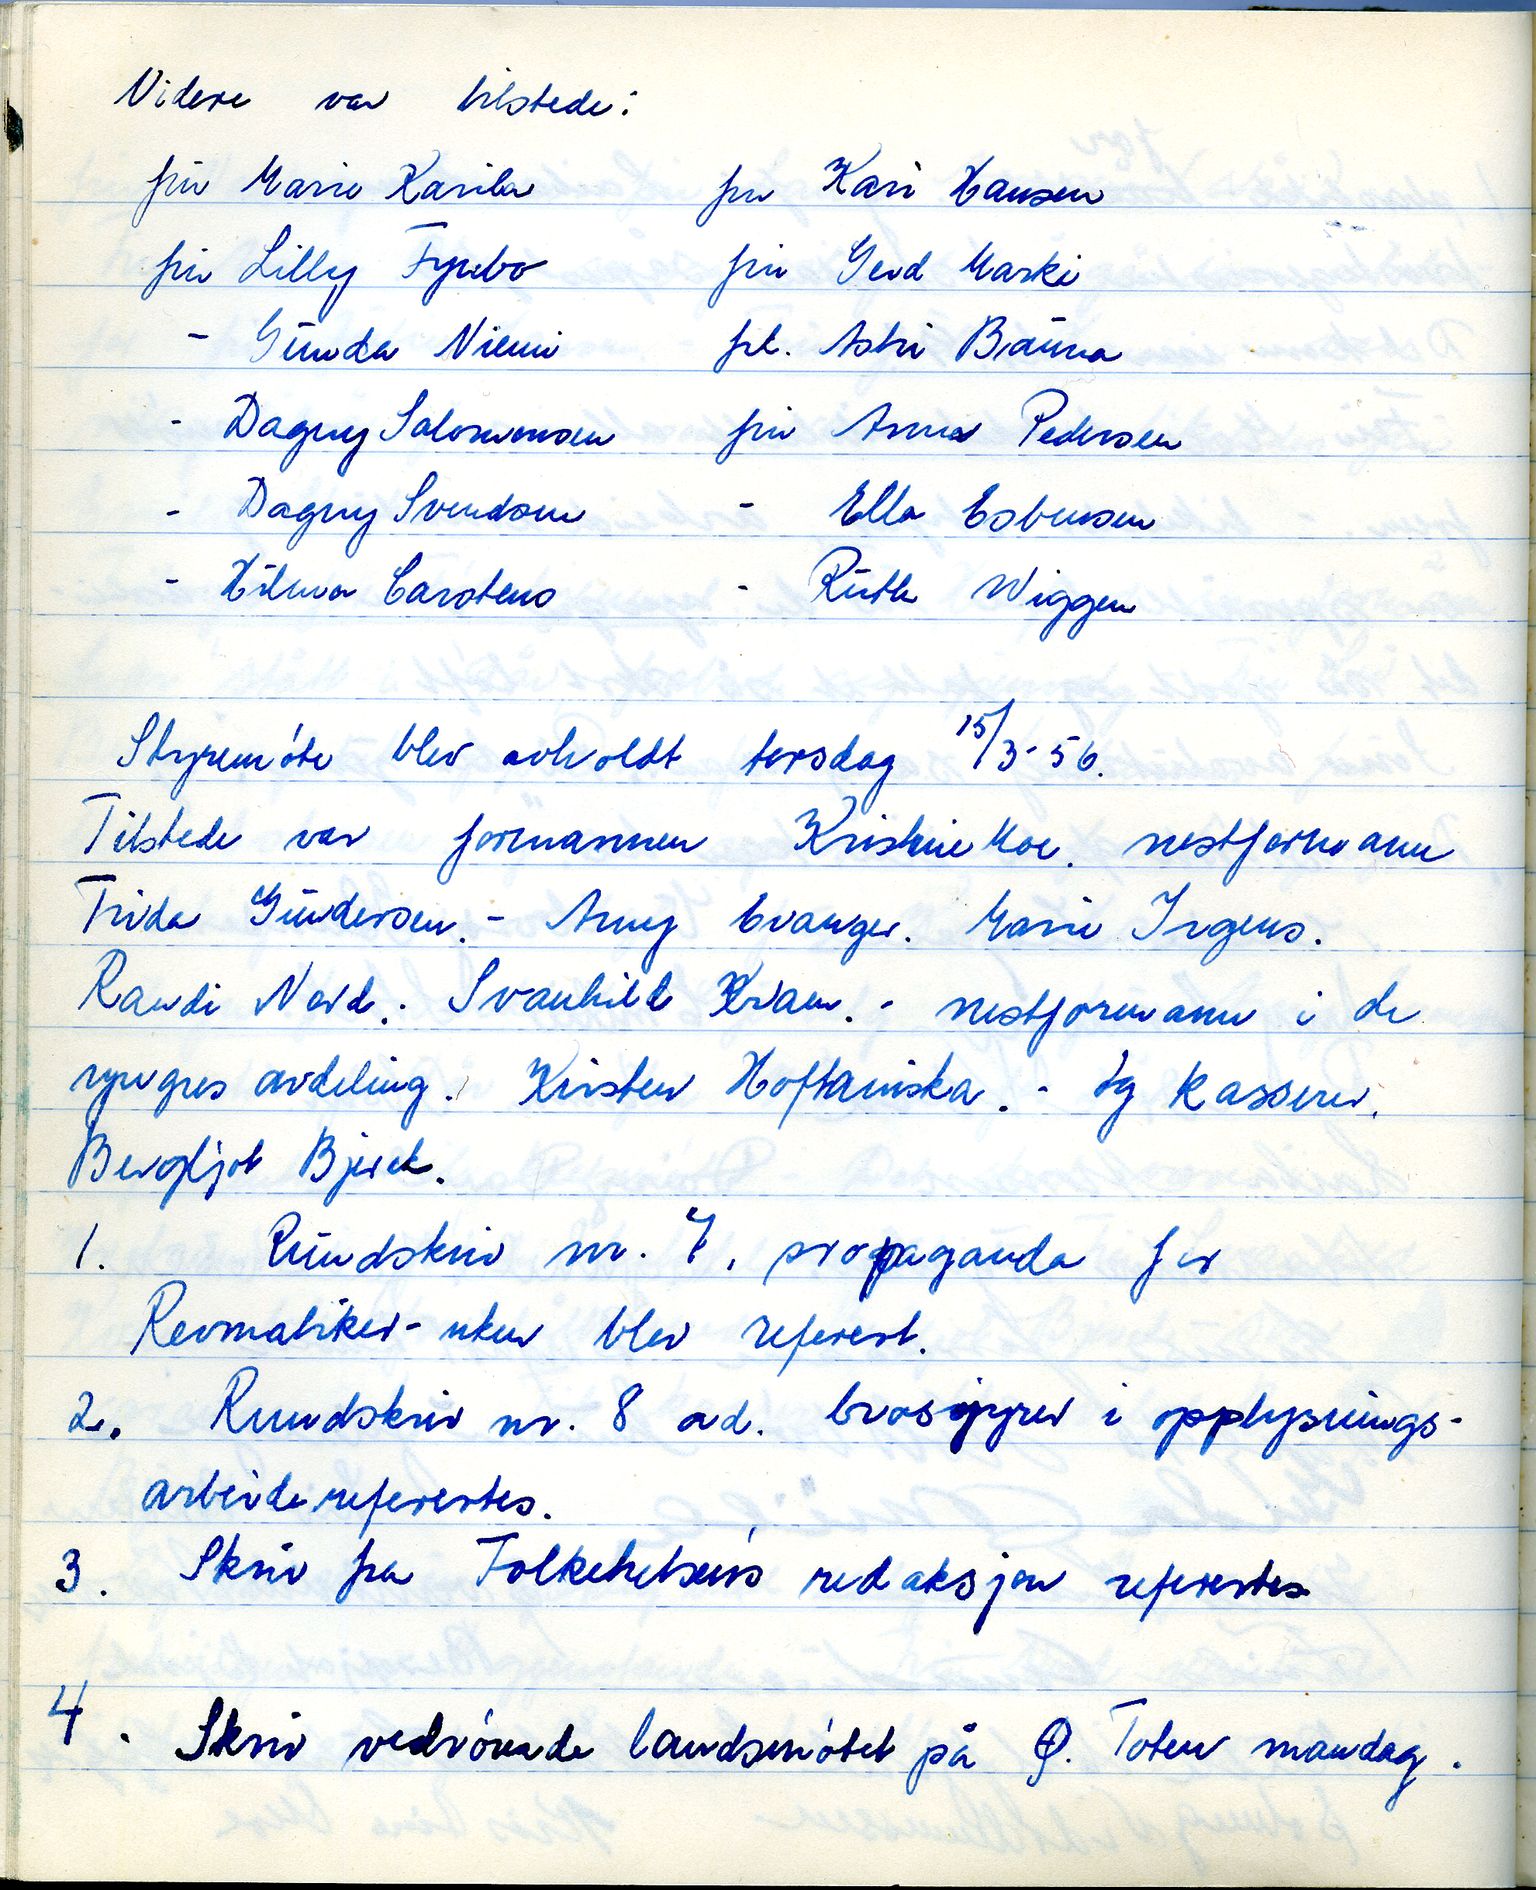 Videre var tilstede:
frú Marie Karila frú Kari Hansen
frú Lilly Fyrebo frú Gerd Marki
- Gúnda Niemi frk. Astri Bãúna
- Dagny Salomonsen frú Anna Pedersen
- Dagny Svendsen - Ella Esbensen
- Hilma Carstens - Rúth Wiggen
Styremóte blev avholdt torsdag 15/3-56.
Tilstede var formannen Kristine Moe. nestformann
Frida Gúndersen. - Anny Evanger. Marie Irgens.
Randi Nord. - Svanhild Kram. - nestformann i de
yngres avdeling. Kirsten Hoftaniska. - og kasserer.
Bergljot Bjerck.
1. Rúndskriv nr. 7, propaganda for
Revmatiker-uken blev referert.
2. Rundskriv nr. 8 ad. brosjyrer i opplysnings-
arbeide refereres.
3. Skriv fra Folkehelsens redaksjon refereres
4. Skriv vedrórende landsmótet på Ø. Toten mandag.